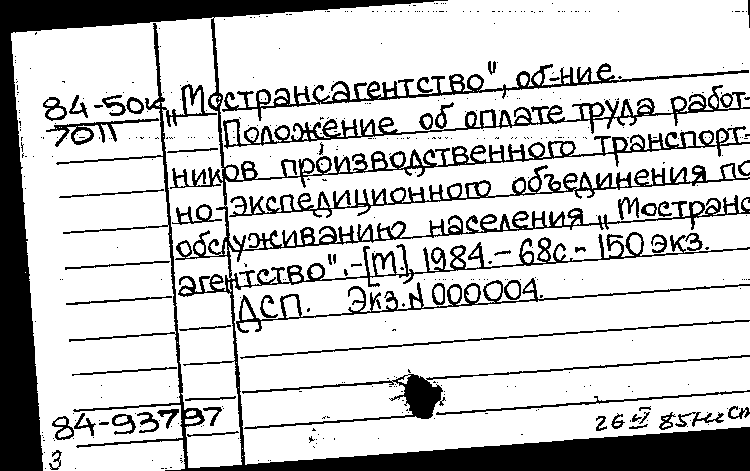 84-50к „Мострансагентство", об-ние.
7011 Положение об оплате труда работ-
ников производственного транспорт-
но-экспедиционного объединения по
обслуживанию населения „Мостранс
агентство". -[М], 1984.- 68с.- 150 экз.
ДСП. Экз.N 000004.
84-93797
26 85
3